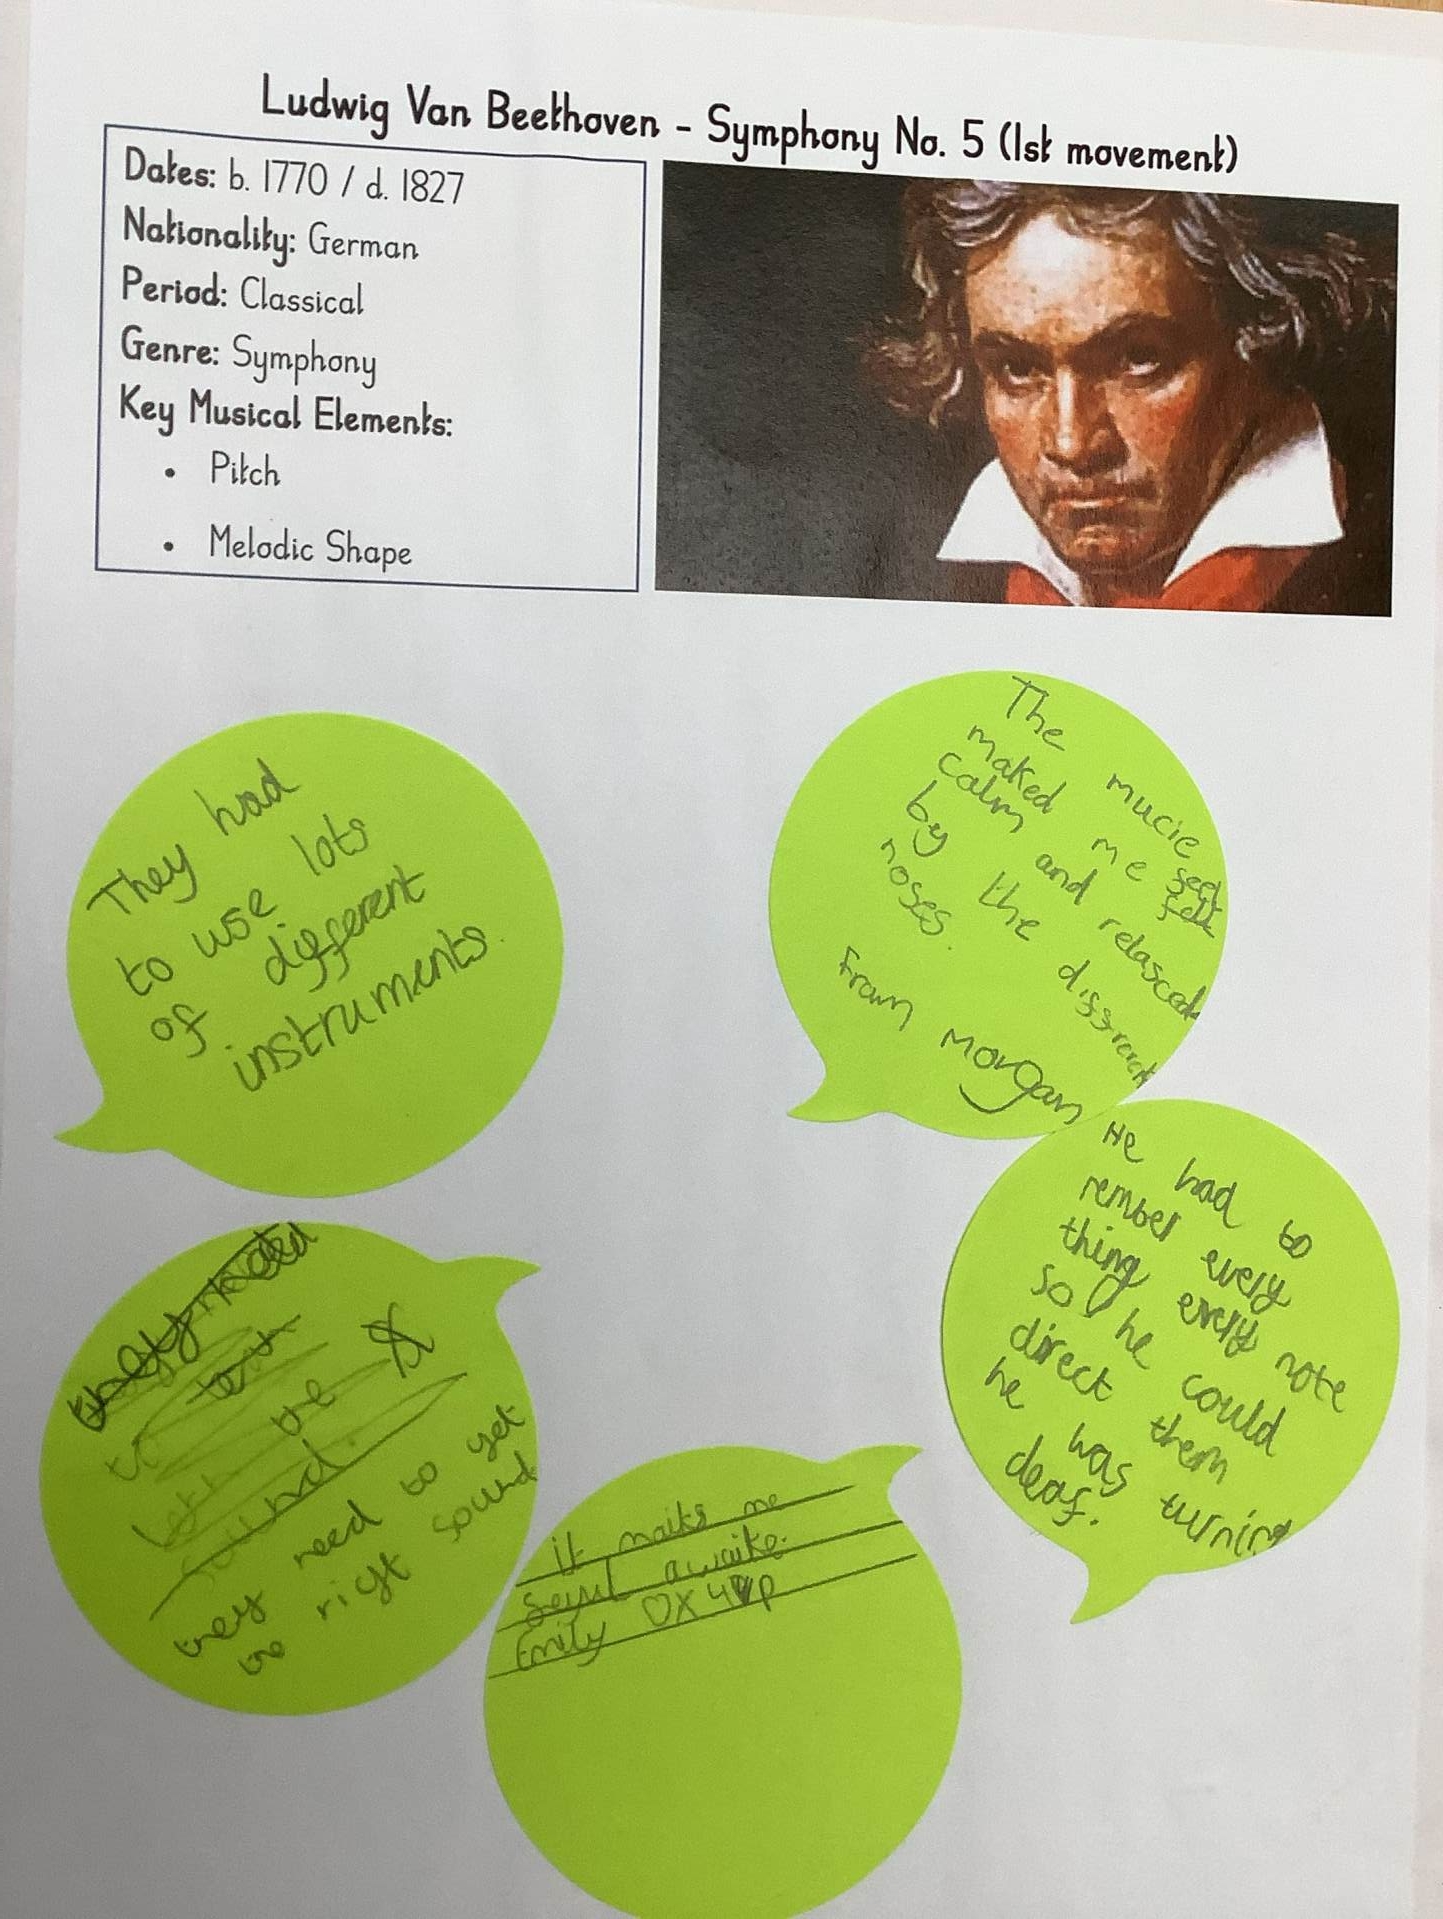 Ludwig Van Beethoven - Symphony No. 5 (1st movement)
Dates: b. 1770 / d. 1827
Nationality: German
Period: Classical
Genre: Symphony
Key Musical Elements:
• Pitch
• Melodic Shape
They had
to use lots
of different
instruments.
The mucic
maked me felt
calm and relasced
by the
noses.
From Morgan
He had to
rember every
thing every note
so he could
direct them
he was turning
deaf.
the
sound.
they need to get
the right sound
it maiks me
awaike.
Emily